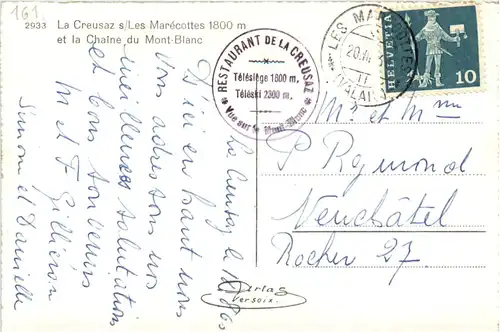 161
2933 La Creusaz s/Les Marécottes 1800 m
et la Chaîne du Mont-Blanc
RESTAURANT DE LA CREUSAZ
Télésiège 1800 m.
Téléski 2300 m.
* Vue sur le Mont-Blanc *
LES MARÉCOTTES
20.
(VALAIS)
HELVETIA
10
La Creusaz le
D'ici en haut nous
vous adressons nos
meilleures salutations
et bons souvenirs
M et F Gilliéron
Simone et Danielle
M. et Mme
P Raymond
Neuchâtel
Rocher 27
Perlas
Versoix.